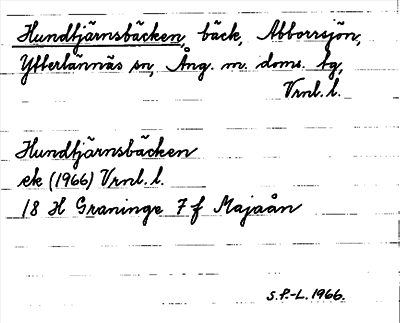 Hundtjärnsbäcken, bäck, Abborrsjön,
Ytterlännäs sn, Ång. m. doms. tg,
Vrnl. l.
Hundtjärnsbäcken
ek (1966) Vrnl. l.
18 H Graninge 7 f Majaån
S.P.-L. 1966.